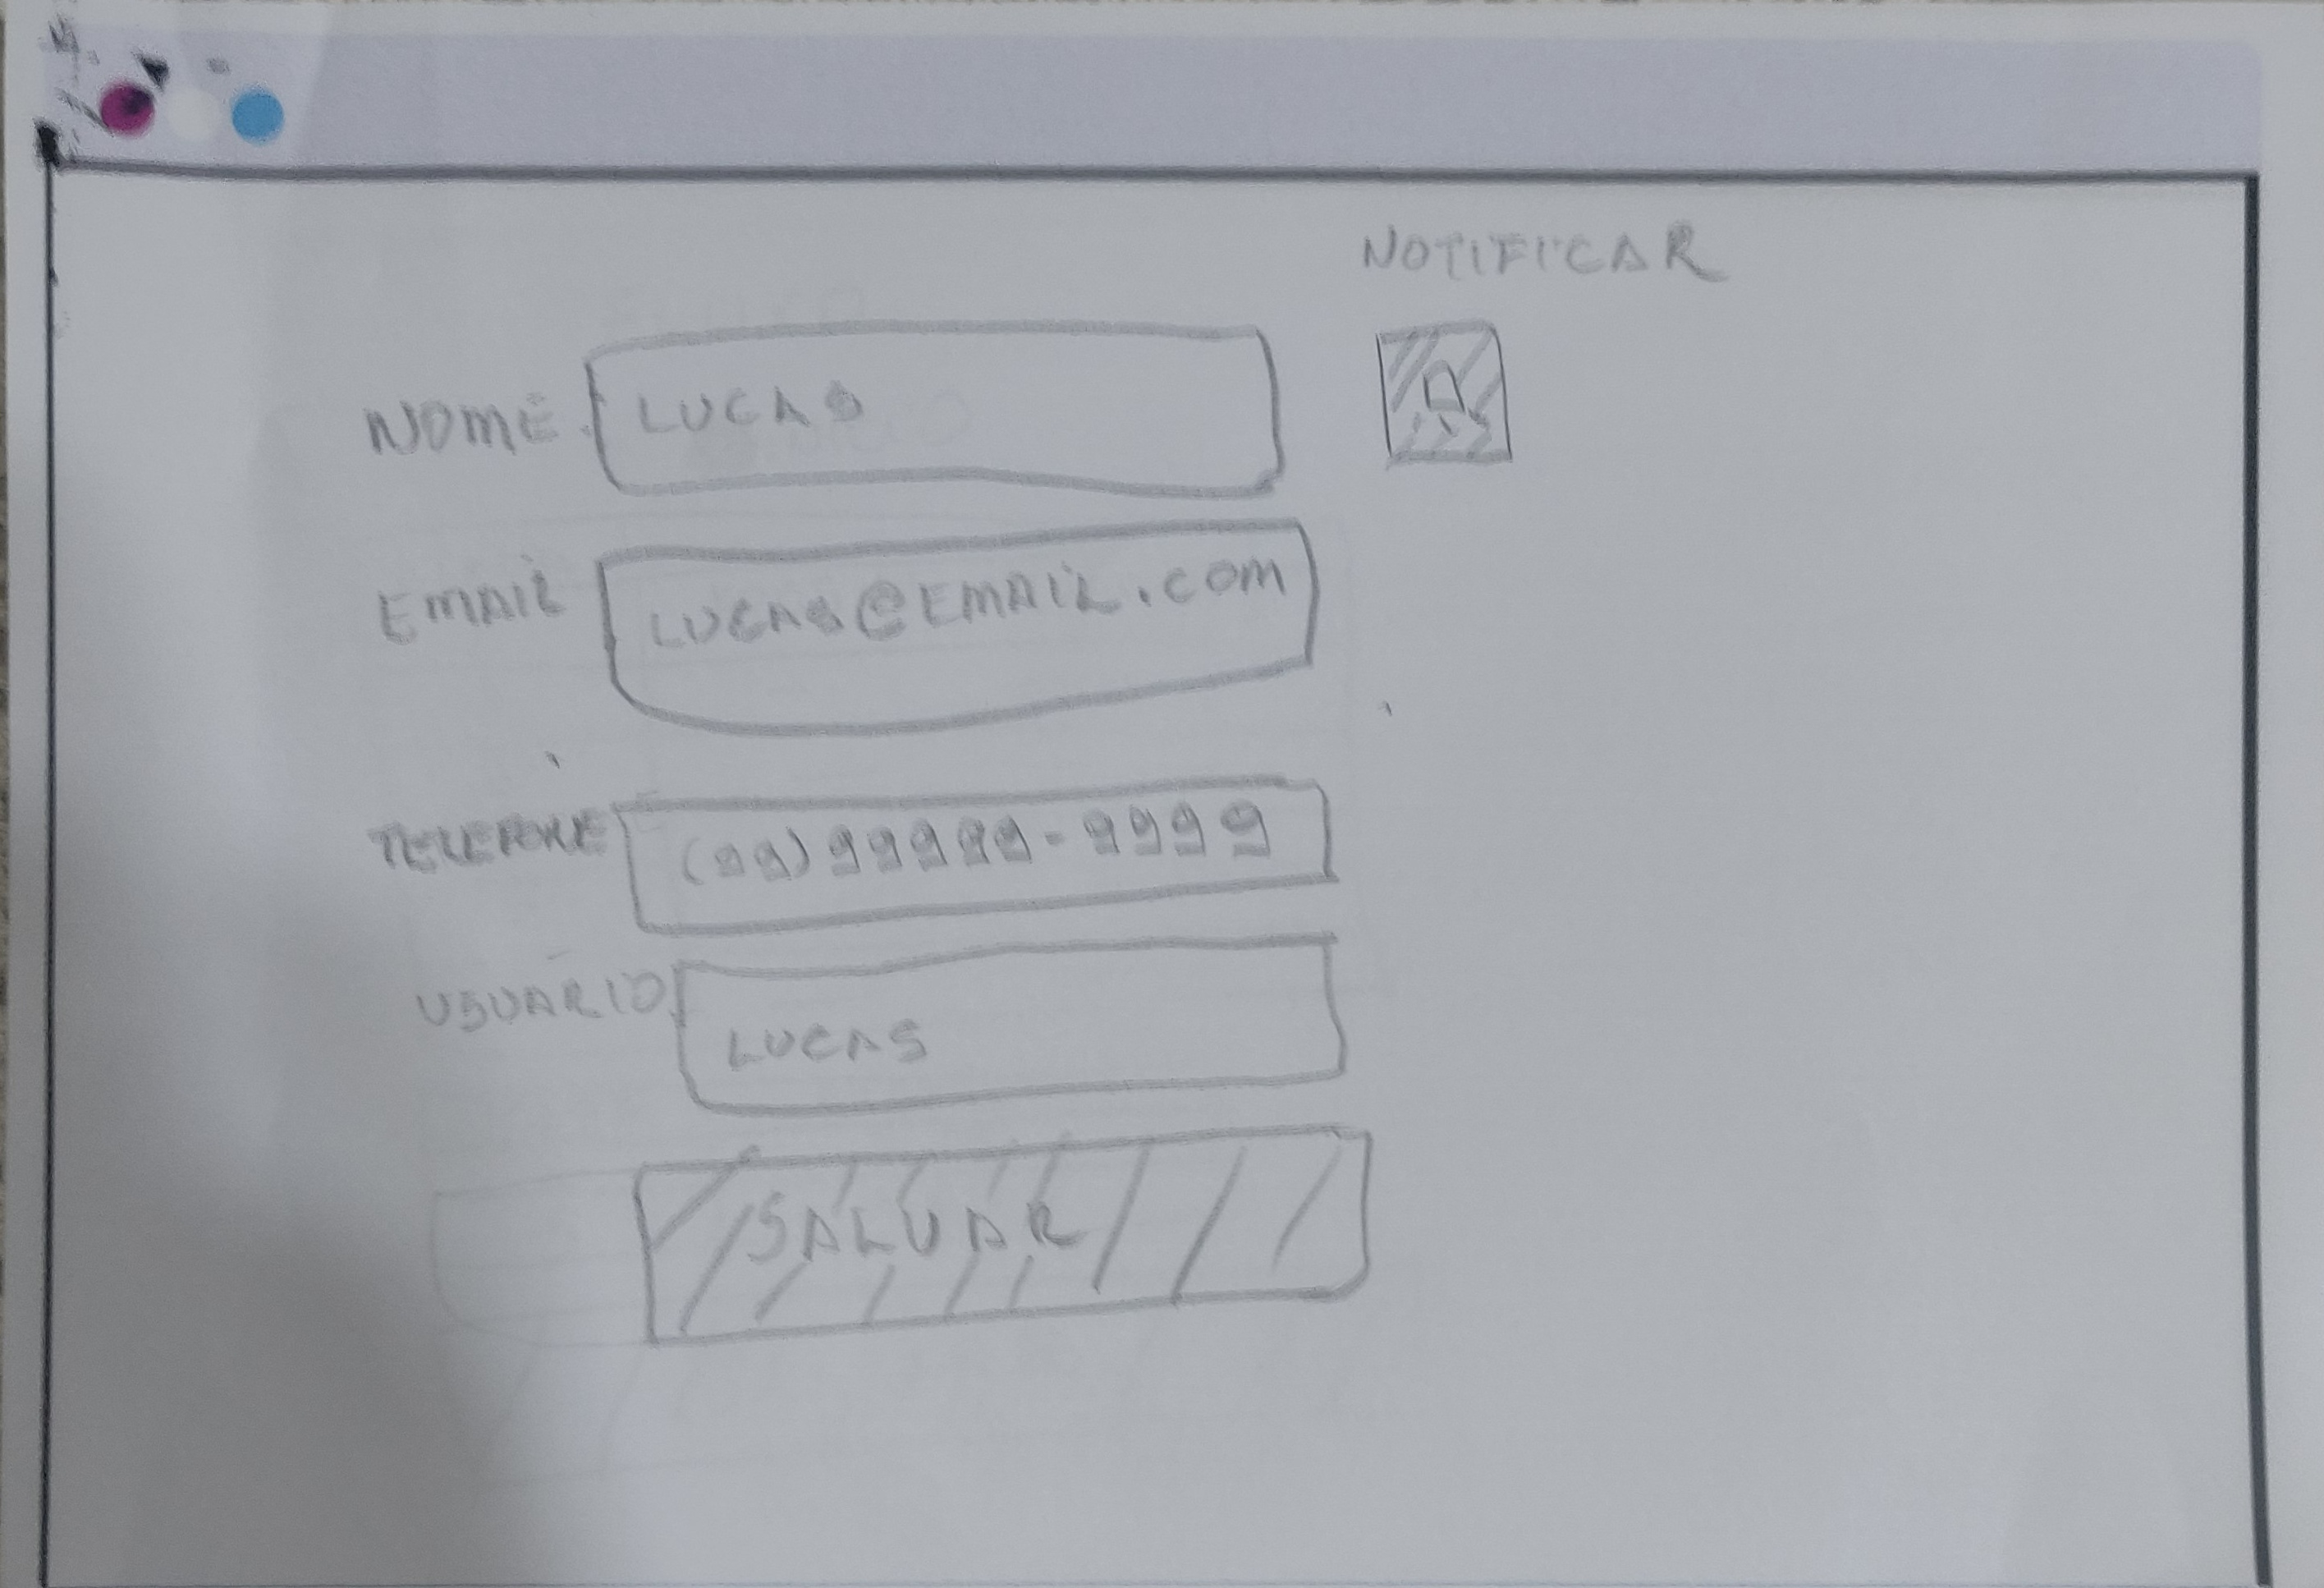 NOTIFICAR
NOME LUCAS
EMAIL LUCAS@EMAIL.COM
TELEFONE (99) 99999-9999
USUARIO LUCAS
SALVAR